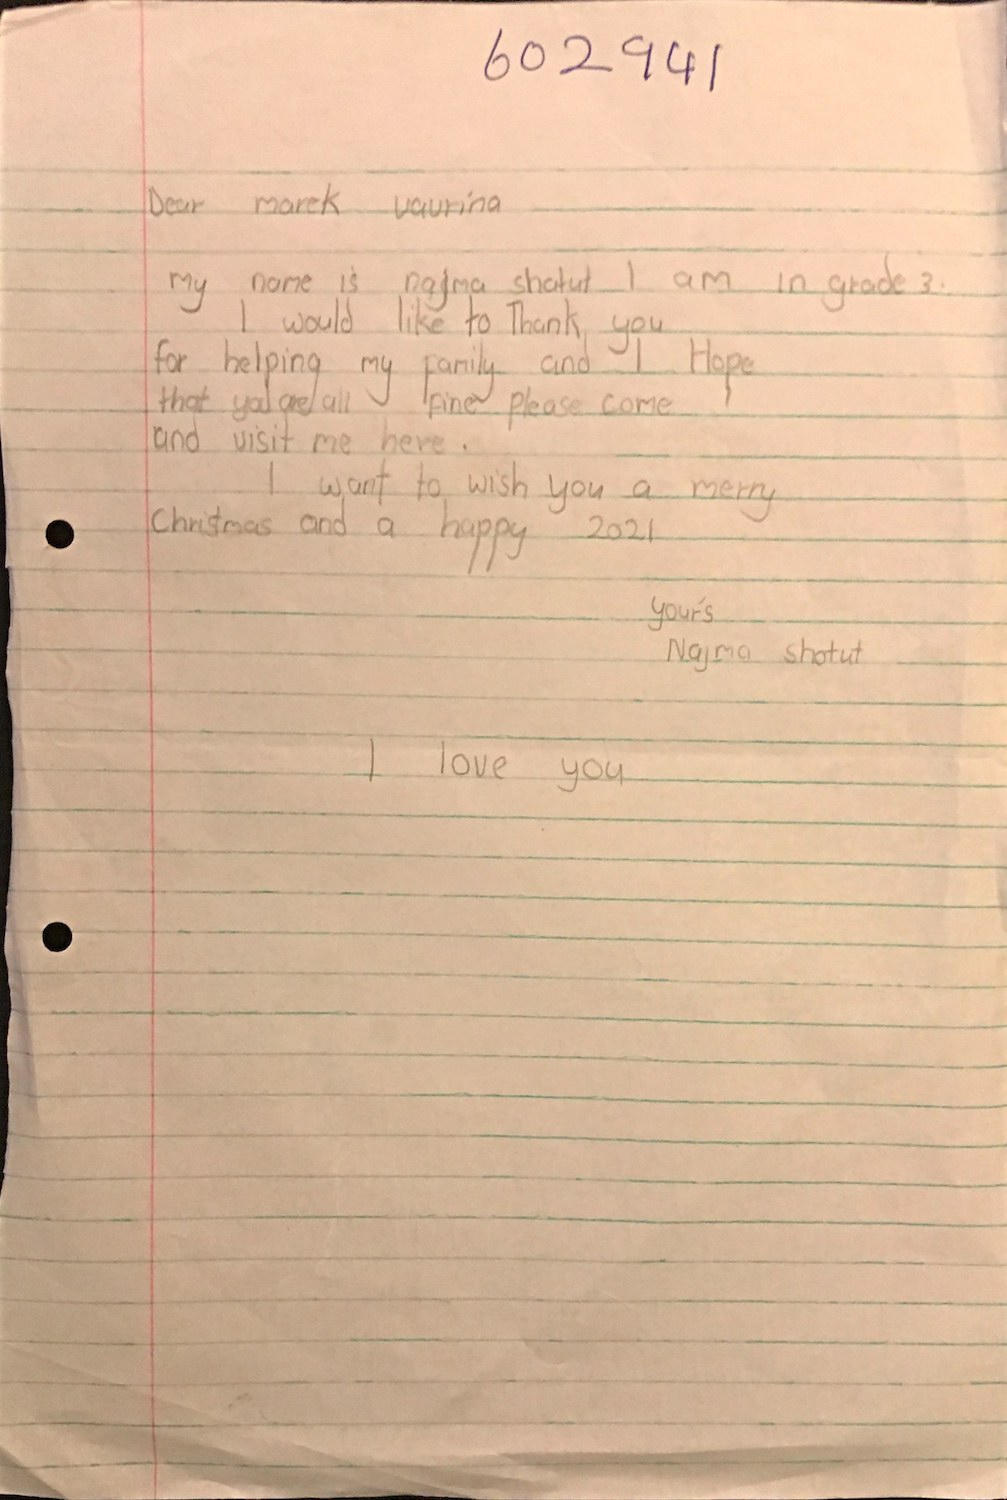 602941
Dear marek vavrina
My name is najma shotut I am in grade 3.
I would like to Thank you
for helping my family and I Hope
that you are all fine please come
and visit me here.
I want to wish you a merry
Christmas and a happy 2021
your's
Najma shotut
I love you